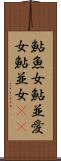 鮎魚女鮎並愛
女鮎並女